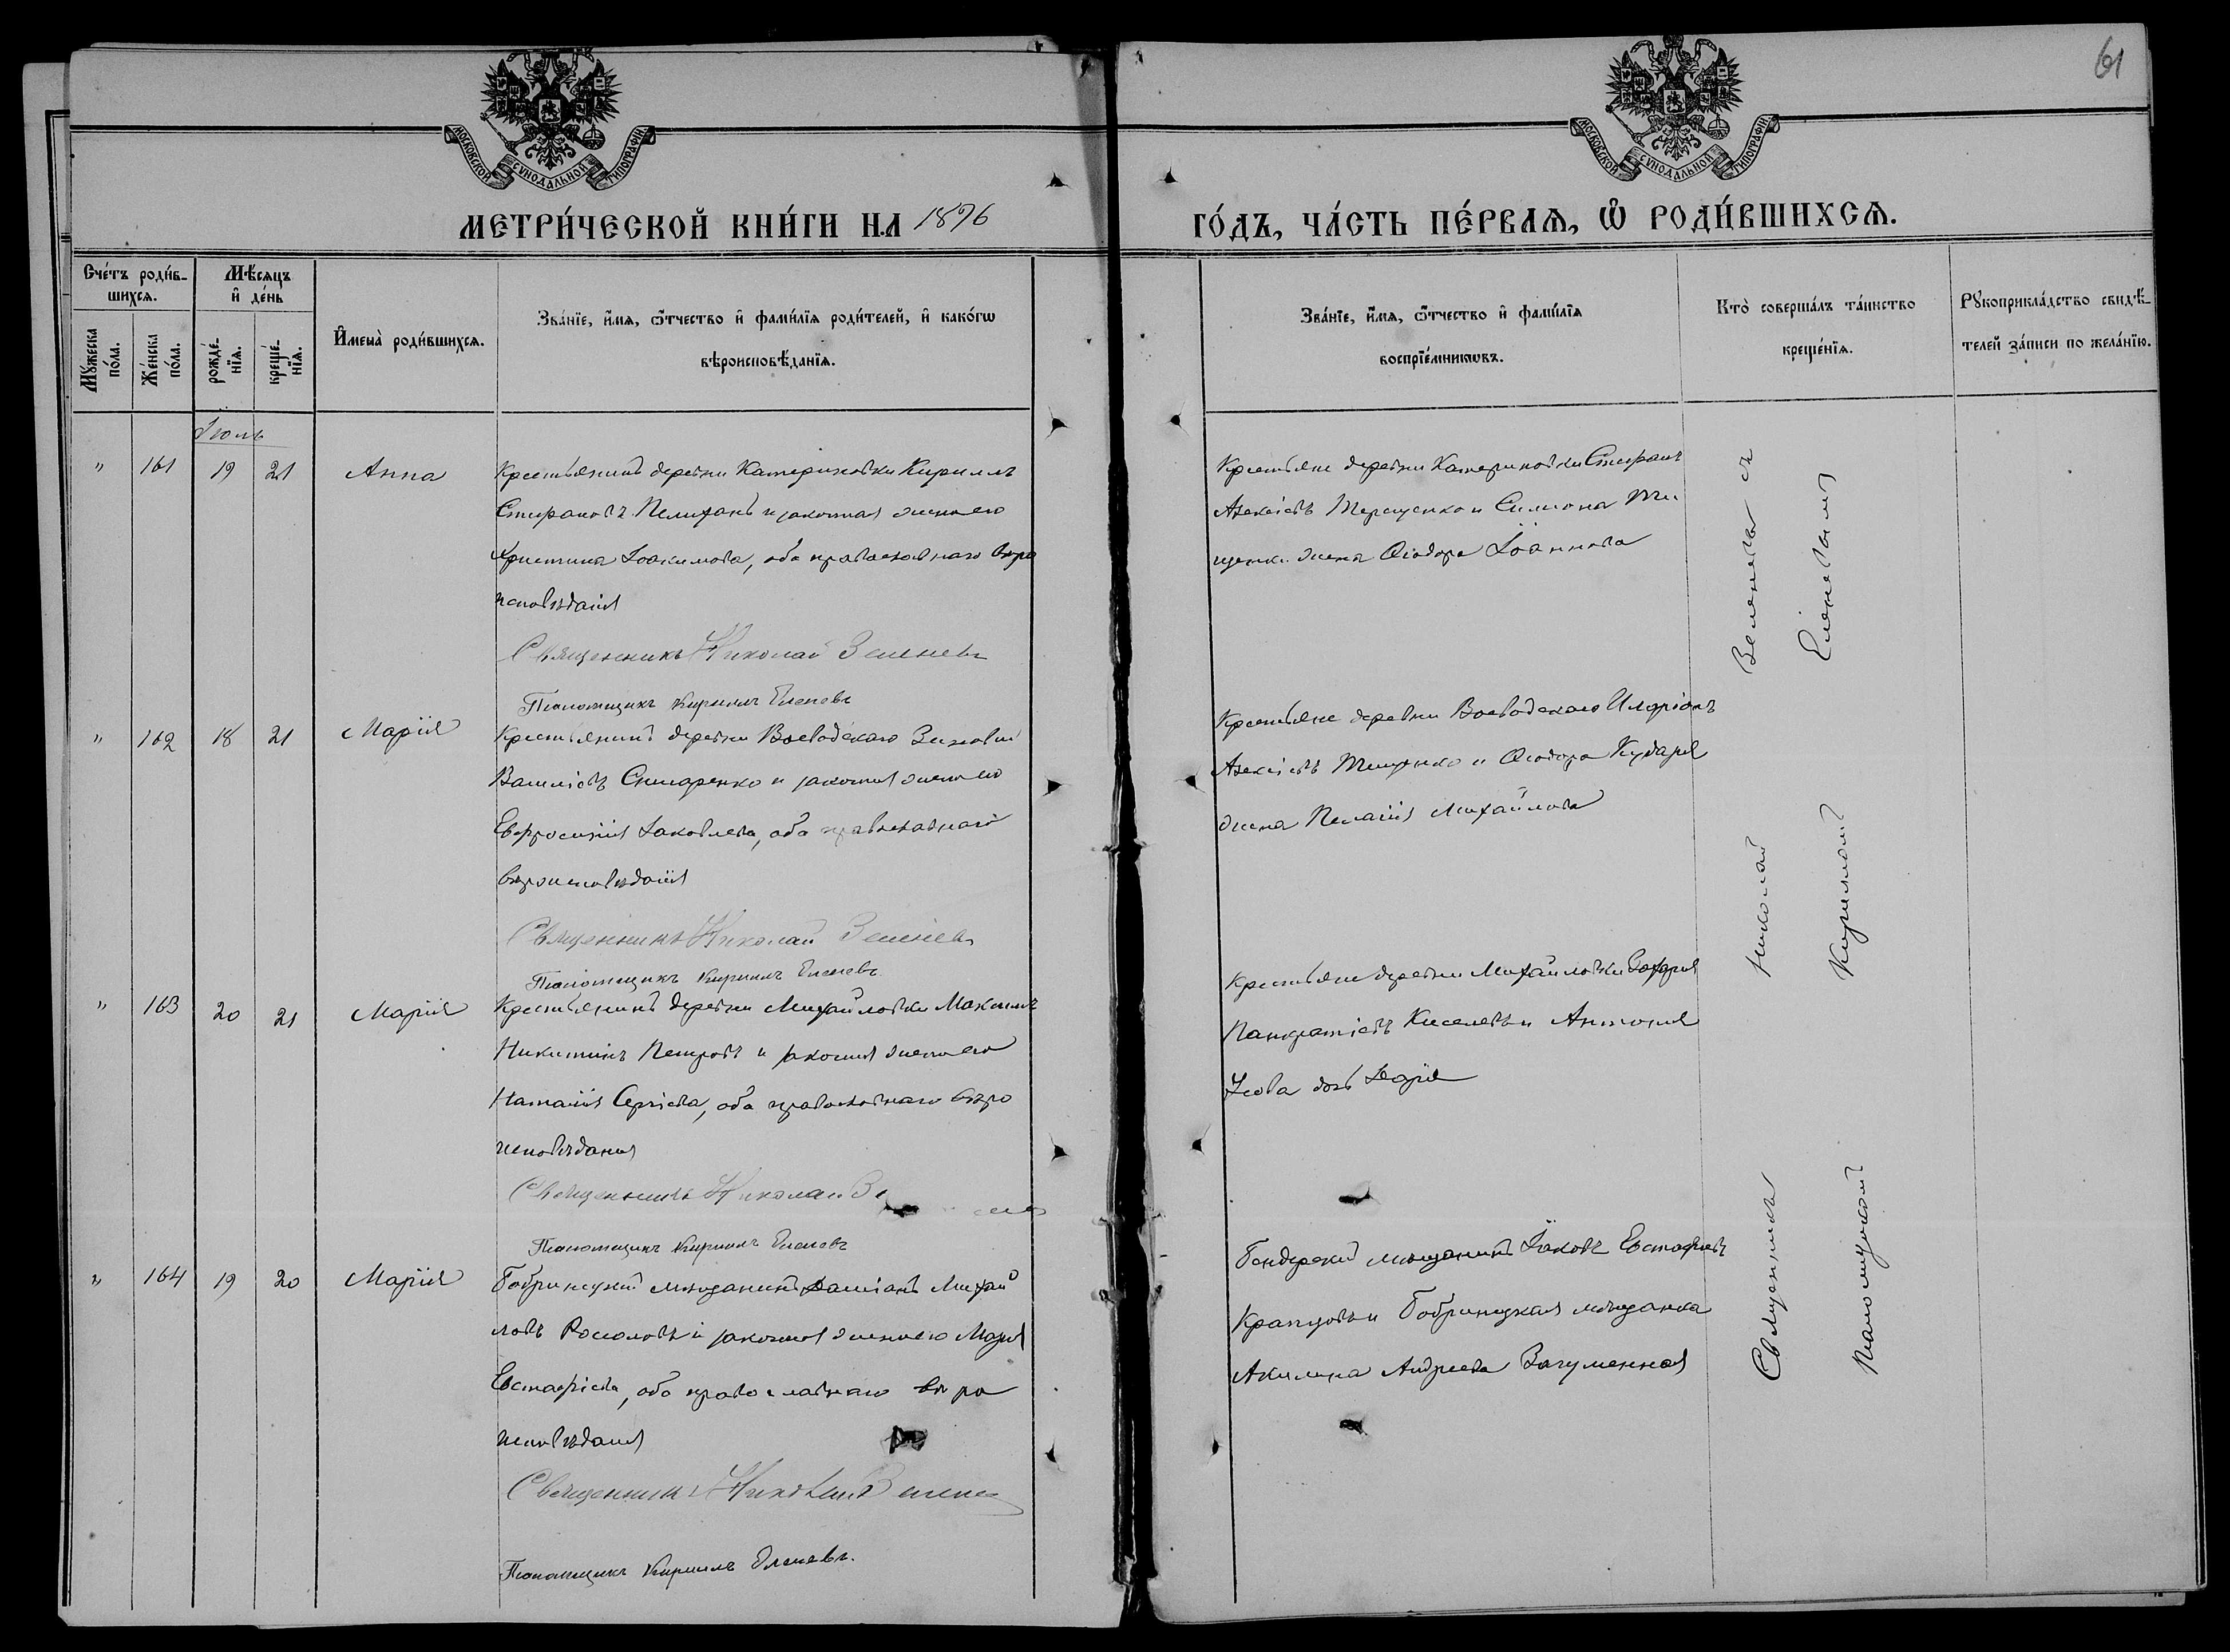 61
МОСКОВСКОЙ СѴНОДАЛЬНОЙ ТИПОГРАФІИ
МОСКОВСКОЙ СѴНОДАЛЬНОЙ ТИПОГРАФІИ
МЕТРИ́ЧЕСКОЙ КНИ́ГИ НА 1896
ГО́ДЪ, ЧА́СТЬ ПЕ́РВАѦ, Ѿ РОДИ́ВШИХСѦ.
Сче́тъ роди́в-
шихсѧ.
Мꙋжеска
по́ла.
Же́нска
по́ла.
Мѣ́сѧцъ
и де́нь
рожде́-
нїѧ.
креще́-
нїѧ.
И҆мена̀ роди́вшихсѧ.
Зва́нїе, и҆́мѧ, ѻ҆́тчество и҆ фами́лїѧ роди́телей, и҆ како́гѡ
вѣроисповѣ́данїѧ.
Зва́нїе, и҆́мѧ, ѻ҆́тчество и҆ фами́лїѧ
воспрїе́мникѡвъ.
Кто̀ соверша́лъ та́инство
креще́нїѧ.
Рꙋкоприкла́дство свидѣ́-
телей за́писи по жела́нїю.
Іюль
" 161 19 21 Анна
Крестьянинъ деревни Катериновки Кириллъ
Стефановъ Пелиханъ и законная жена его
Христина Іоакимова, оба православнаго вѣро
исповѣданія
Священникъ Николай Зеленевъ
Псаломщикъ Кириллъ Еленевъ
Крестьяне деревни Катериновки Стефанъ
Алексіевъ Терещенко и Симеона Ти
щенко жена Ѳеодора Іоаннова
" 162 18 21 Марія
Крестьянинъ деревни Воеводскаго Зиновій
Василіевъ Слюсаренко и законная жена его
Евфросинія Іаковлева, оба православнаго
вѣроисповѣданія
Священникъ Николай Зеленевъ
Псаломщикъ Кириллъ Еленевъ
Крестьяне деревни Воеводскаго Иларіонъ
Алексіевъ Тищенко и Ѳеодора Кухаря
жена Пелагія Михайлова
" 163 20 21 Марія
Крестьянинъ деревни Михайловки Максимъ
Никитинъ Петровъ и законная жена его
Наталія Сергіева, оба православнаго вѣро
исповѣданія
Священникъ Николай
Псаломщикъ Кириллъ Еленевъ
Крестьяне деревни Михайловки Захарія
Панкратіевъ Киселевъ и Антонія
Усова дочь Дарія
" 164 19 20 Марія
Бобринецкій мѣщанинъ Даміанъ Михай
ловъ и законная жена его Марія
Евстафіева, оба православнаго вѣро
исповѣданія
Священникъ Николай Зеленевъ
Псаломщикъ Кириллъ Еленевъ.
Бендерскій мѣщанинъ Іаковъ Евстафіевъ
Крапцовъ и Бобринецкая мѣщанка
Акилина Андреева Загуменная
Священникъ Николай Зеленевъ съ
Псаломщикомъ Кирилломъ Еленевымъ